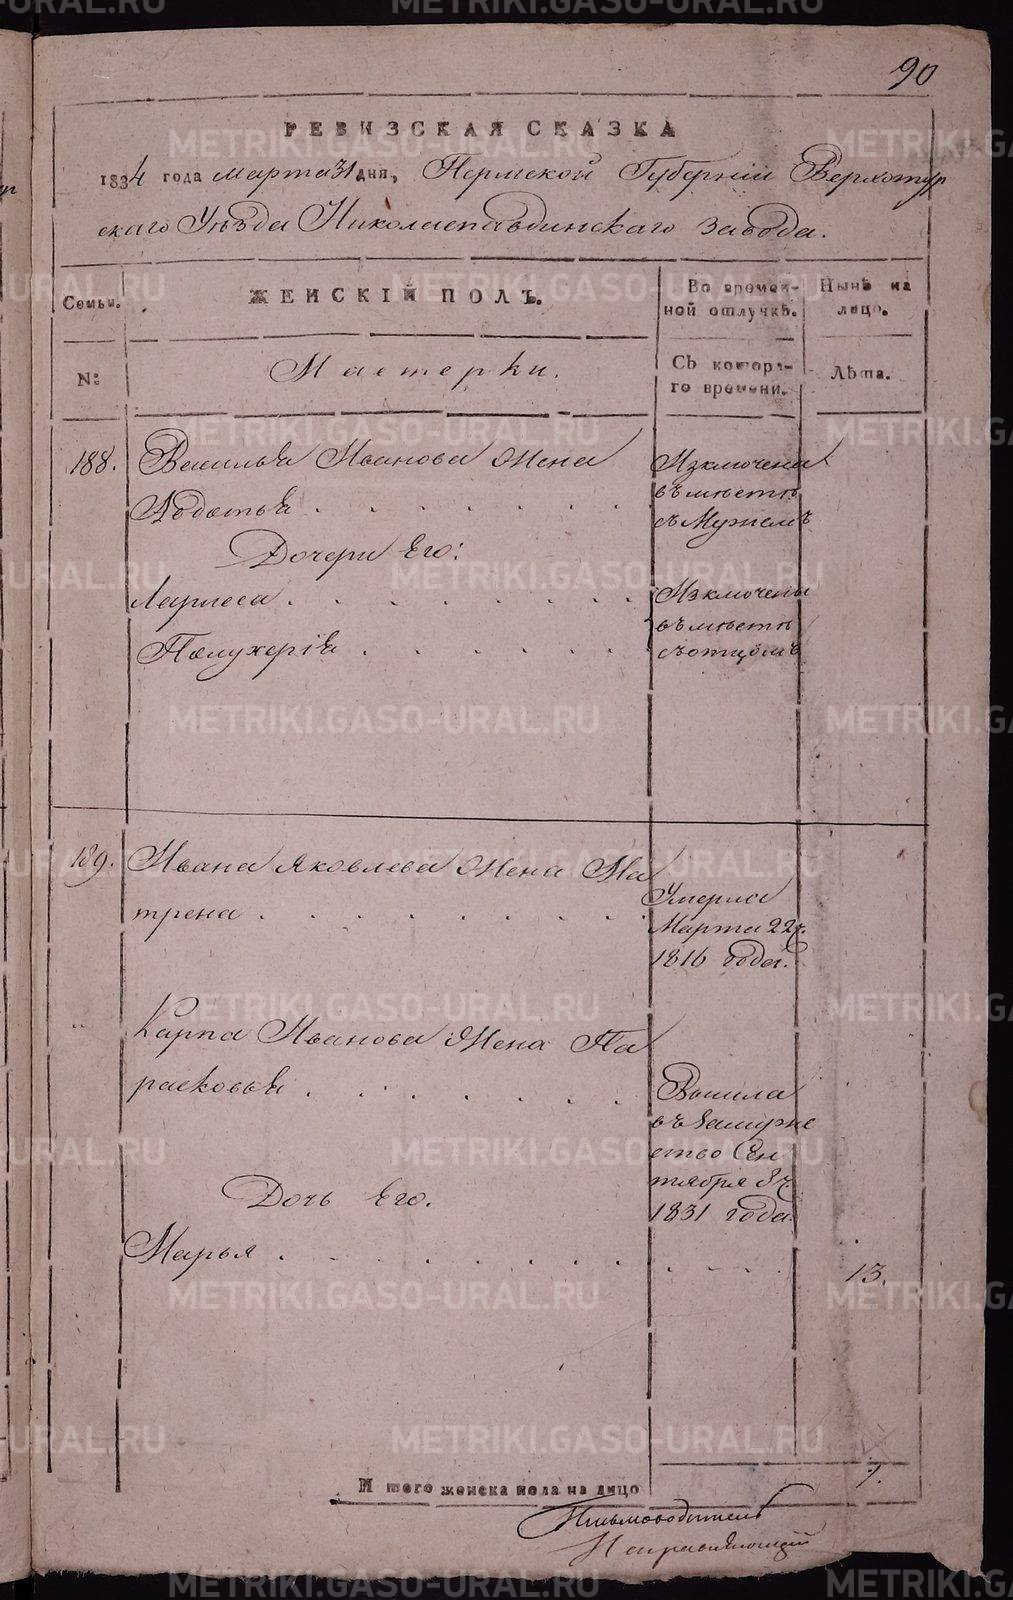 90
РЕВИЗСКАЯ СКАЗКА
1834 года марта 31 дня, Пермской Губерніи Верхотур
скаго Уѣзда Николаепавдинскаго завода.
Семьи.
ЖЕНСКІЙ ПОЛЪ.
Во времен-
ной отлучкѣ.
Нынѣ на
лицо.
№
Мастерки.
Съ котора-
го времени.
Лѣта.
188.
Василья Иванова Жена
Исключена
Ѳедотья
вмѣстѣ
съ Мужемъ
Дочери Его:
Лариса
Изключены
вмѣстѣ
Пелухерія
съ отцомъ
189.
Ивана Яковлева Жена Ма
трена
Умерла
Марта 22 ч.
1816 года.
Карпа Иванова Жена Па
расковья
Вышла
въ Замуже
ство Сен
тября 8 ч.
1831 года
Дочь Его.
Марья
13.
Итого женска пола на лицо
1.
Письмоводитель
Исправляющій
METRIKI.GASO-URAL.RU